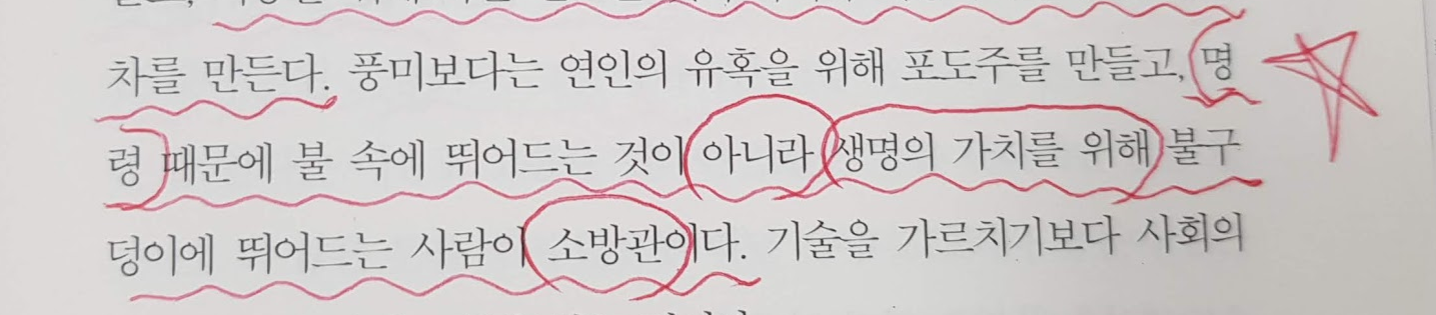 차를 만든다. 풍미보다는 연인의 유혹을 위해 포도주를 만들고, 명
령 때문에 불 속에 뛰어드는 것이 아니라 생명의 가치를 위해 불구
덩이에 뛰어드는 사람이 소방관이다. 기술을 가르치기보다 사회의